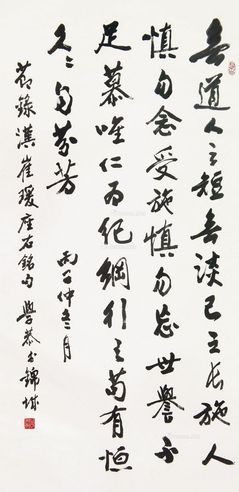 無道人之短無談己之長施人
慎勿念受施慎勿忘世譽不
足慕唯仁為紀綱行之苟有恒
久々自芬芳
丙子仲冬月
節錄漢崔瑗座右銘句 學恭書錦城